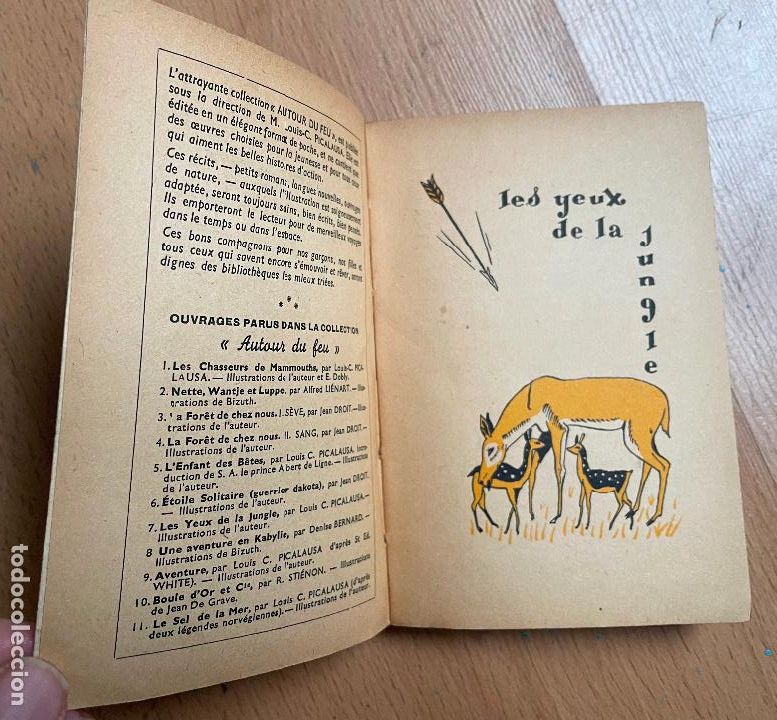 L'attrayante collection « AUTOUR DU FEU », est publiée
sous la direction de M. Louis-C. PICALAUSA. Elle est
éditée en un élégant format de poche, et ne contient que
des œuvres choisies pour la jeunesse et pour tous ceux
qui aiment les belles histoires d'action.
Ces récits, — petits romans, longues nouvelles, ouvrages
de nature, — auxquels l'illustration est soigneusement
adaptée, seront toujours sains, bien écrits, bien pensés.
Ils emporteront le lecteur pour de merveilleux voyages
dans le temps ou dans l'espace.
Ces bons compagnons pour nos garçons, nos filles et
tous ceux qui savent encore s'émouvoir et rêver, seront
dignes des bibliothèques les mieux triées.
* * *
OUVRAGES PARUS DANS LA COLLECTION
« Autour du feu »
1. Les Chasseurs de Mammouths, par Louis-C. PICA-
LAUSA. — Illustrations de l'auteur et E. Dobly.
2. Nette, Wantje et Luppe, par Alfred LIÉNART. — Illus-
trations de Bizuth.
3. La Forêt de chez nous. I. SÈVE, par Jean DROIT. — Illus-
trations de l'auteur.
4. La Forêt de chez nous. II. SANG, par Jean DROIT. —
Illustrations de l'auteur.
5. L'Enfant des Bêtes, par Louis C. PICALAUSA. Intro-
duction de S. A. le prince Albert de Ligne. — Illustrations
de l'auteur.
6. Étoile Solitaire (guerrier dakota), par Jean DROIT. —
Illustrations de l'auteur.
7. Les Yeux de la Jungle, par Louis C. PICALAUSA. —
Illustrations de l'auteur.
8 Une aventure en Kabylie, par Denise BERNARD. —
Illustrations de Bizuth.
9. Aventure, par Louis C. PICALAUSA d'après St Ed.
WHITE). — Illustrations de l'auteur.
10. Boule d'Or et Cie, par R. STIÉNON. — Illustrations
de Jean De Grave.
11. Le Sel de la Mer, par Louis C. PICALAUSA (d'après
deux légendes norvégiennes). — Illustrations de l'auteur.
les yeux
de la
jungle
todocoleccion